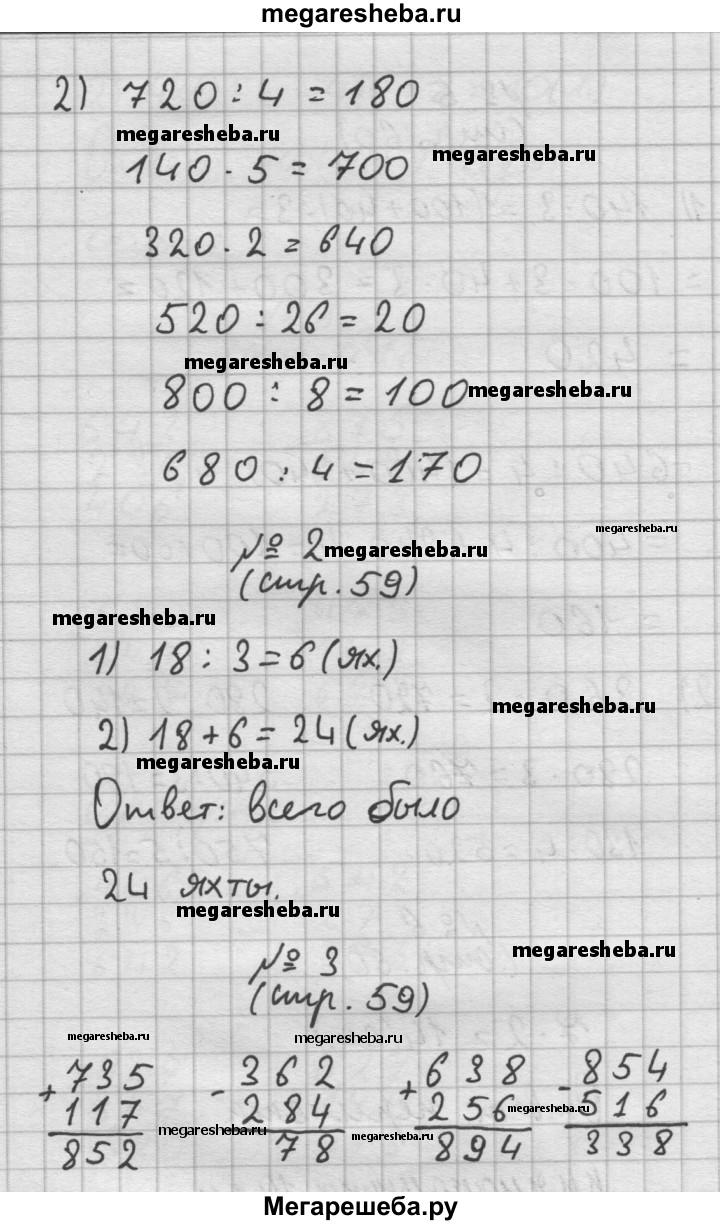 megaresheba.ru
2) 720 : 4 = 180
megaresheba.ru
140 · 5 = 700 megaresheba.ru
320 · 2 = 640
520 : 26 = 20
megaresheba.ru
800 : 8 = 100 megaresheba.ru
680 : 4 = 170
megaresheba.ru
№ 2 megaresheba.ru
(стр. 59)
megaresheba.ru
1) 18 : 3 = 6 (ях.)
megaresheba.ru
2) 18 + 6 = 24 (ях.)
megaresheba.ru
Ответ: всего было
24 яхты.
megaresheba.ru
№ 3 megaresheba.ru
(стр. 59)
megaresheba.ru megaresheba.ru
+ 735 - 362 + 638 - 854
117 284 256 megaresheba.ru 516
megaresheba.ru megaresheba.ru
852 78 894 338
Мегарешеба.ру